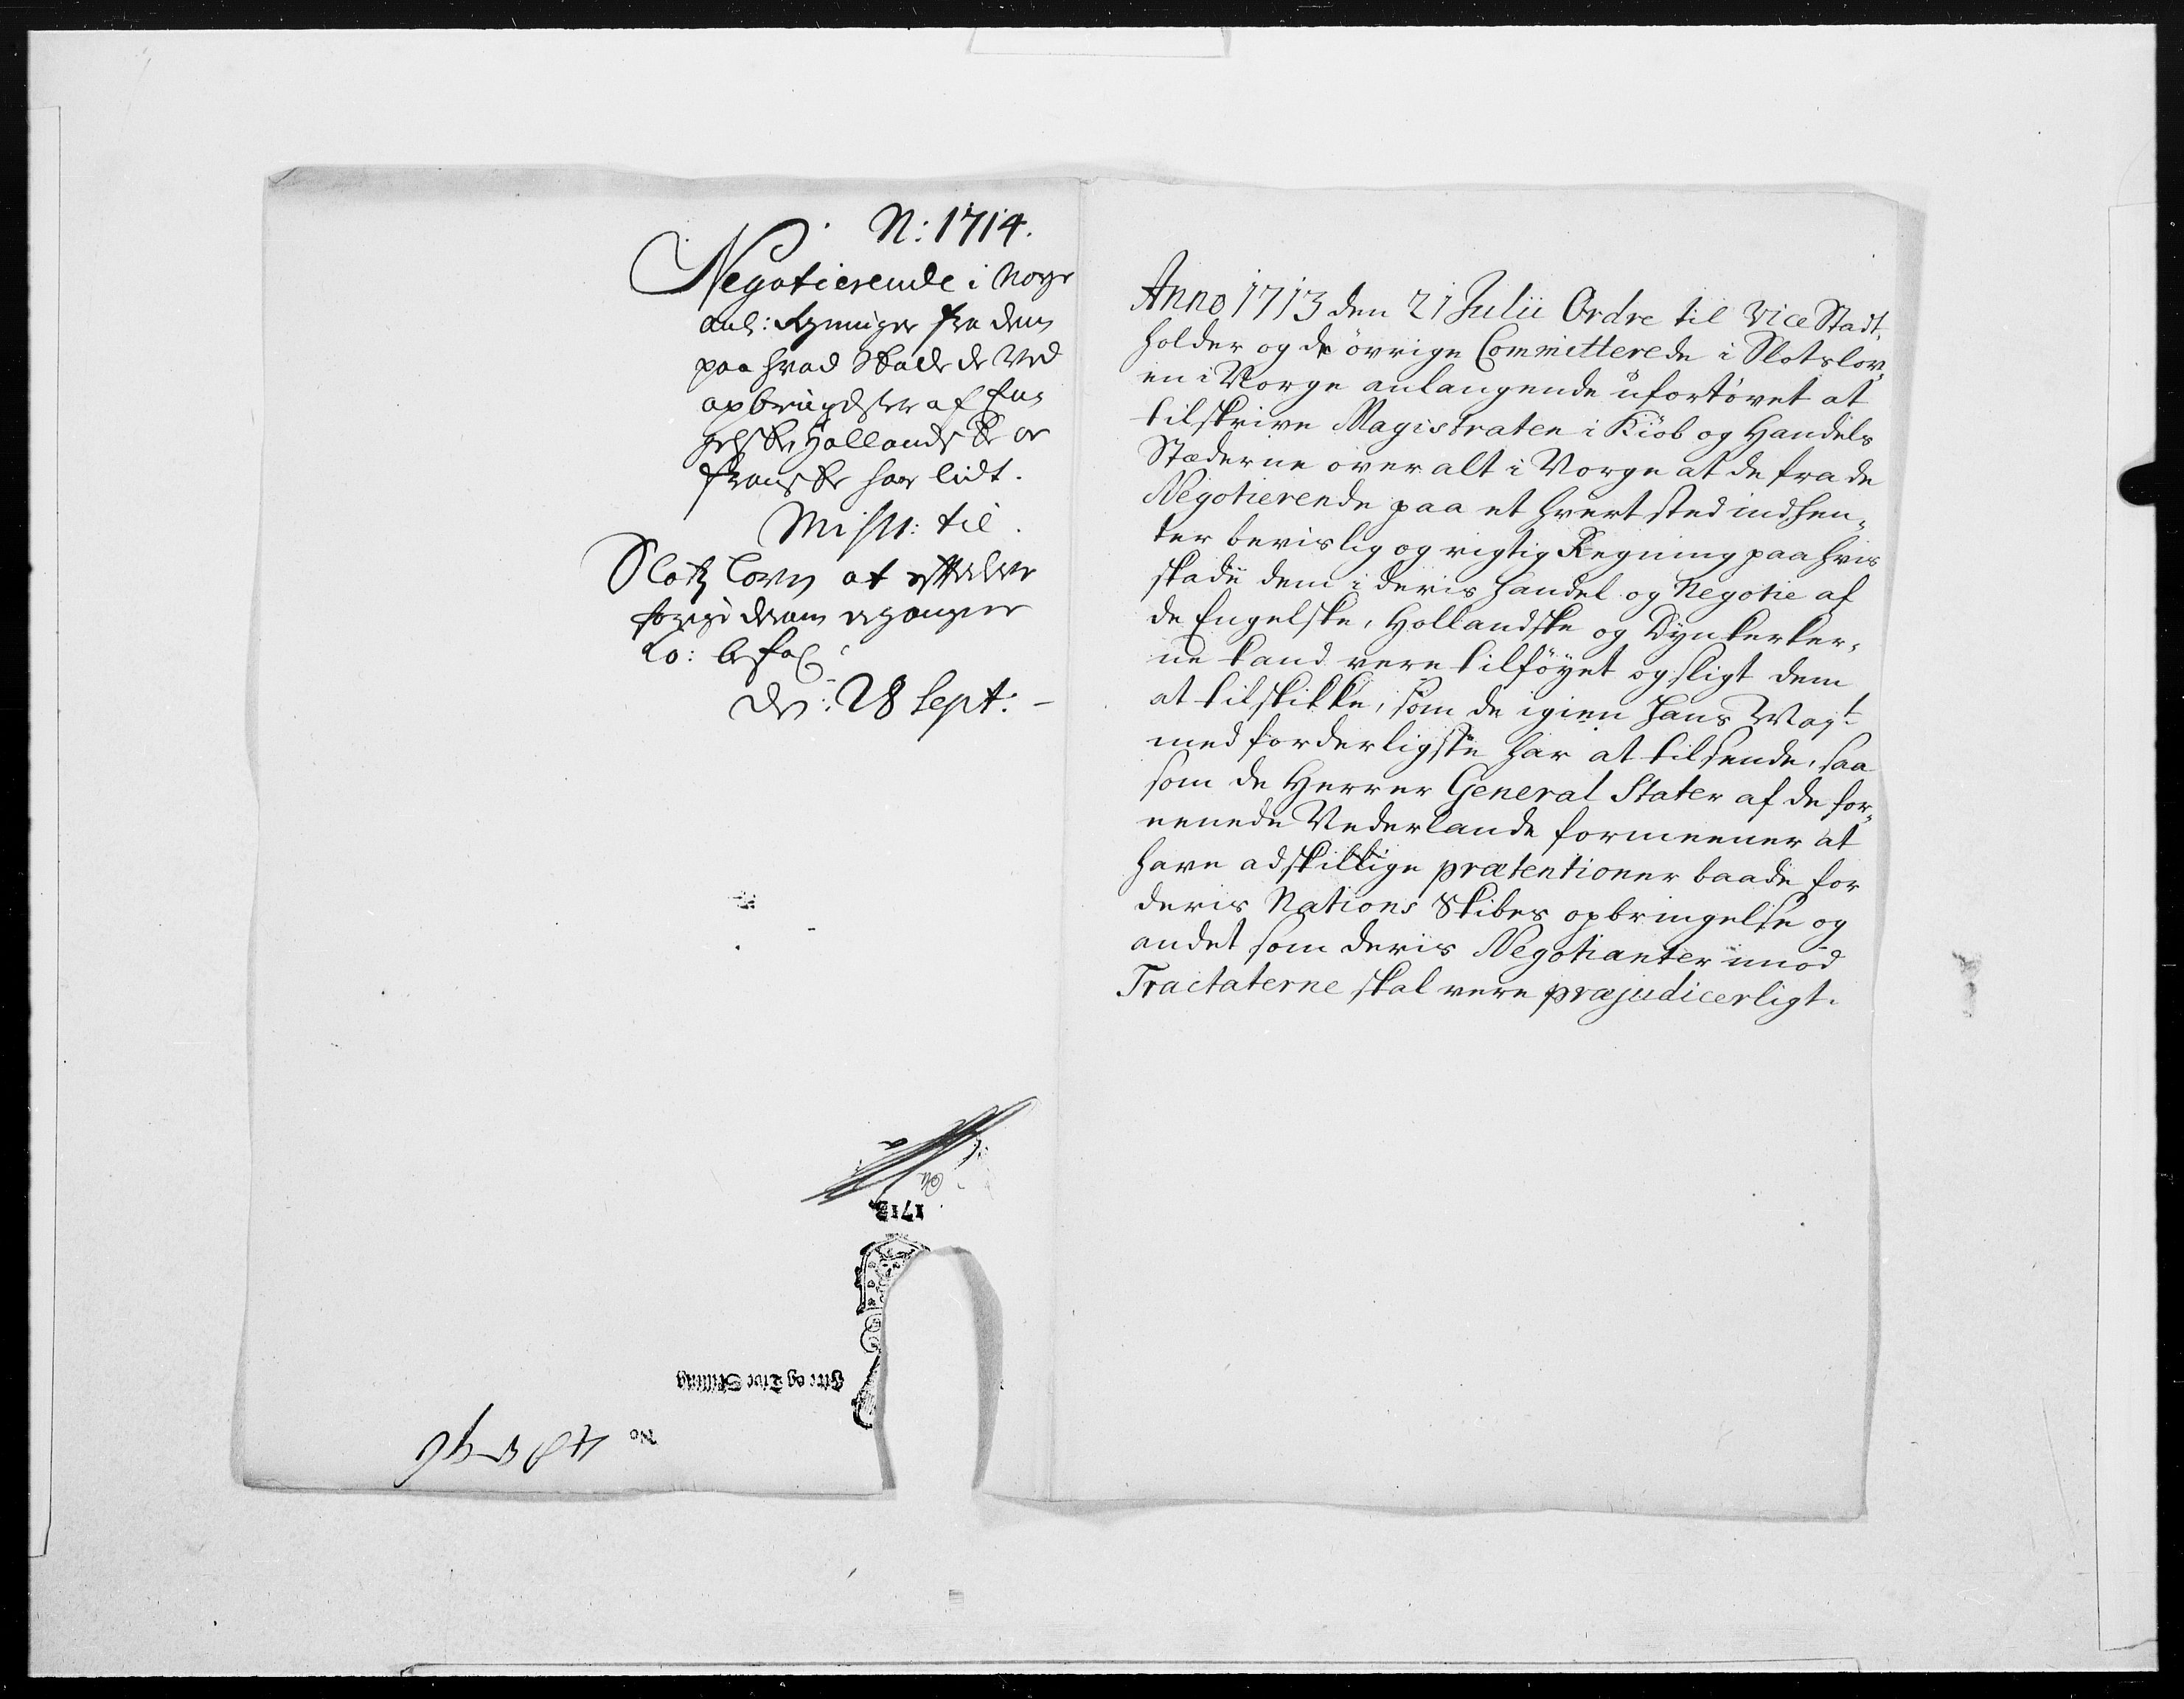 N: 1714.
Negotierende i Norge
anl: Regninger fra dem
paa hvad Skade de ved
opbringelse af En¬
gelske, Hollandske og
Franske har lidt.
Miss: til
Slotz Loven at efterleve
forige derom ergangne
Ko: befal:
den: 28 Sept: -
1713
Fire og Tive Skilling
No
Anno 1713 den 21 Julii Ordre til Vice Stadt¬
holder og de övrige Committerede i Slotslov¬
en i Norge anlangende ufortövet at
tilskrive Magistraten i Kiöb og Handels
Stæderne over alt i Norge at de fra de
Negotierende paa et hvert sted indhen¬
ter bevislig og rigtig Regning paa hvis
skade dem i deris Handel og Negotie af
de Engelske, Hollandske og Dynkerker¬
ne kand vere tilföyet og sligt dem
at tilskikke, som de igien Hans Mayt
med forderligste har at tilsende, saa
som de Herrer General Stater af de for¬
enede Nederlande formeener at
have adskillige prætentioner baade for
deris Nations Skibes opbringelse og
andet som deris Negotianter imod
Tractaterne skal vere præjudicerligt.